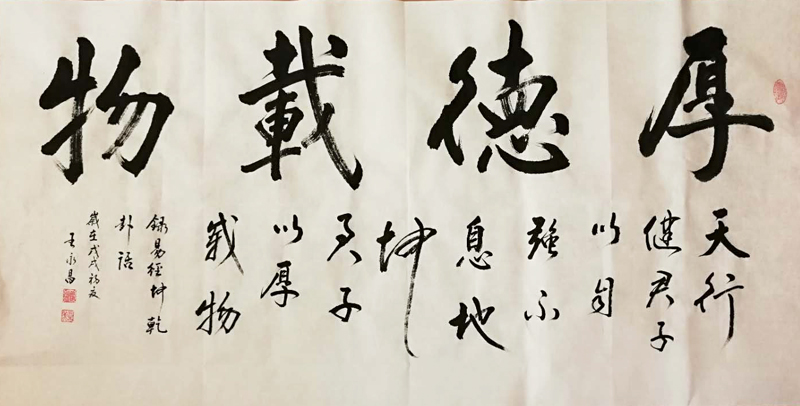 厚德載物
天行
健君子
以自
強不
息地
坤
君子
以厚
載物
錄易經坤乾
卦語
歲在戊戌初夏
王永昌